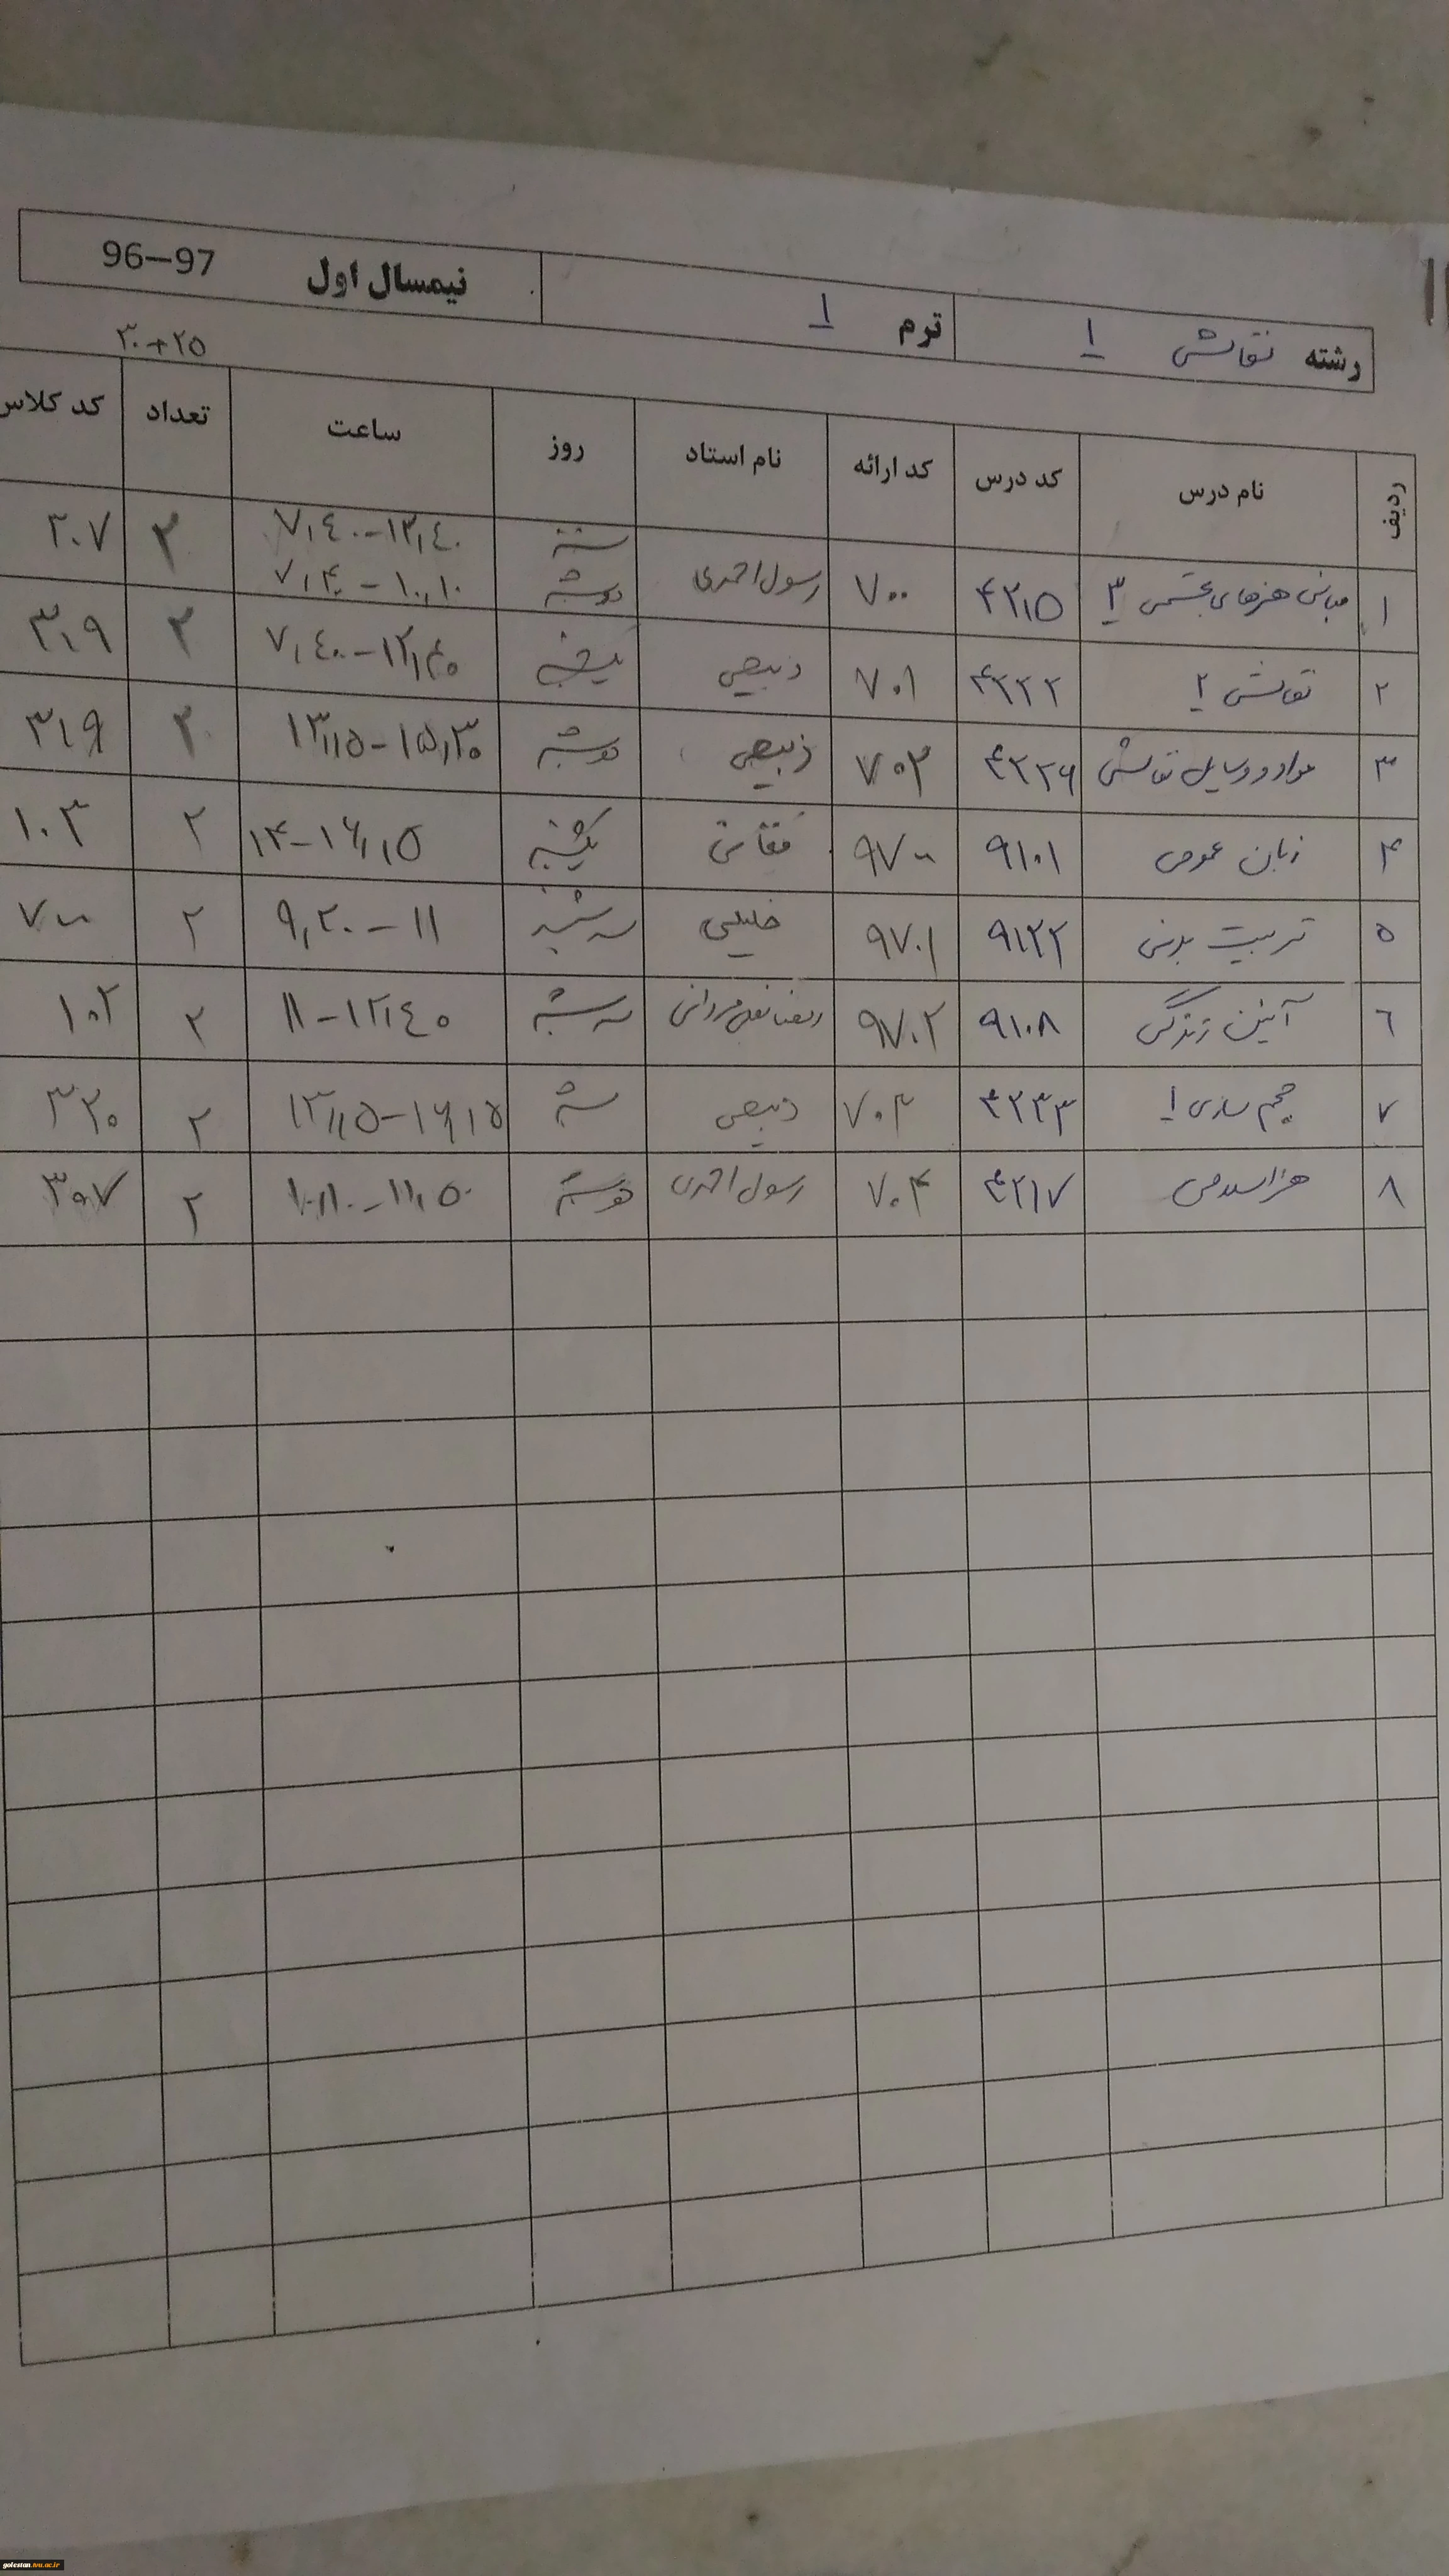 رشته نقاشی ۱ ترم ۱ نیمسال اول 96-97
۳۰+۲۵
ردیف نام درس کد درس کد ارائه نام استاد روز ساعت تعداد کد کلاس
۱ مبانی هنرهای تجسمی ۳ ۴۲۱۵ ۷۰۰ رسول احمدی شنبه ۷,۴۰-۱۲,۴۰ ۳ ۲۰۷
دوشنبه ۷,۴۰-۱۰,۱۰
۲ نقاشی ۱ ۴۲۲۲ ۷۰۱ ذبیحی یکشنبه ۷,۴۰-۱۲,۴۰ ۳ ۳۱۹
۳ مواد و وسایل نقاشی ۴۲۲۶ ۷۰۲ ذبیحی دوشنبه ۱۳,۱۵-۱۵,۳۰ ۲ ۳۱۹
۴ زبان عمومی ۹۱۰۱ ۹۷۰۰ یکشنبه ۱۴-۱۶,۱۵ ۲ ۱۰۳
۵ تربیت بدنی ۹۱۲۲ ۹۷۰۱ خلیلی سه شنبه ۹,۲۰-۱۱ ۲ ۷۰۰
۶ آئین زندگی ۹۱۰۸ ۹۷۰۲ سه شنبه ۱۱-۱۲,۴۰ ۲ ۱۰۲
۷ حجم سازی ۱ ۴۲۳۳ ۷۰۳ ذبیحی شنبه ۱۳,۱۵-۱۶,۱۵ ۲ ۳۲۰
۸ هنر اسلامی ۴۲۱۷ ۷۰۴ رسول احمدی دوشنبه ۱۰,۱۰-۱۱,۵۰ ۲ ۳۰۷
golestan.tvu.ac.ir